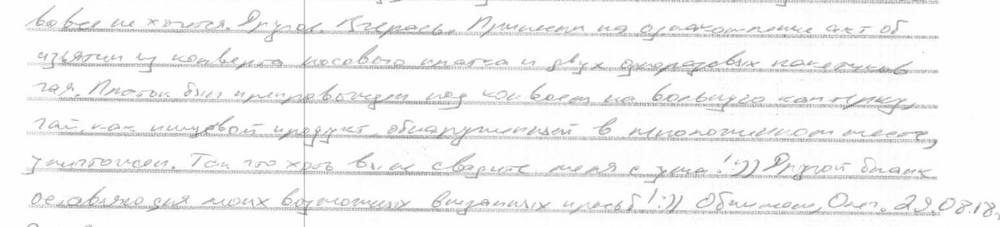 вовсе не хочется. Другое. Вчерась. Принесли на ознакомление акт об
изъятии из конверта носового платка и двух одноразовых пакетиков
чая. Платок был препровожден под конвоем на вольную каптерку,
чай, как пищевой продукт, обнаруженный в неположенном месте,
уничтожен. Так что хоть вы не сводите меня с ума!:)) Другой бланк
оставляю для моих возможных внезапных просьб!:)) Обнимаю, Олег. 29.08.18.